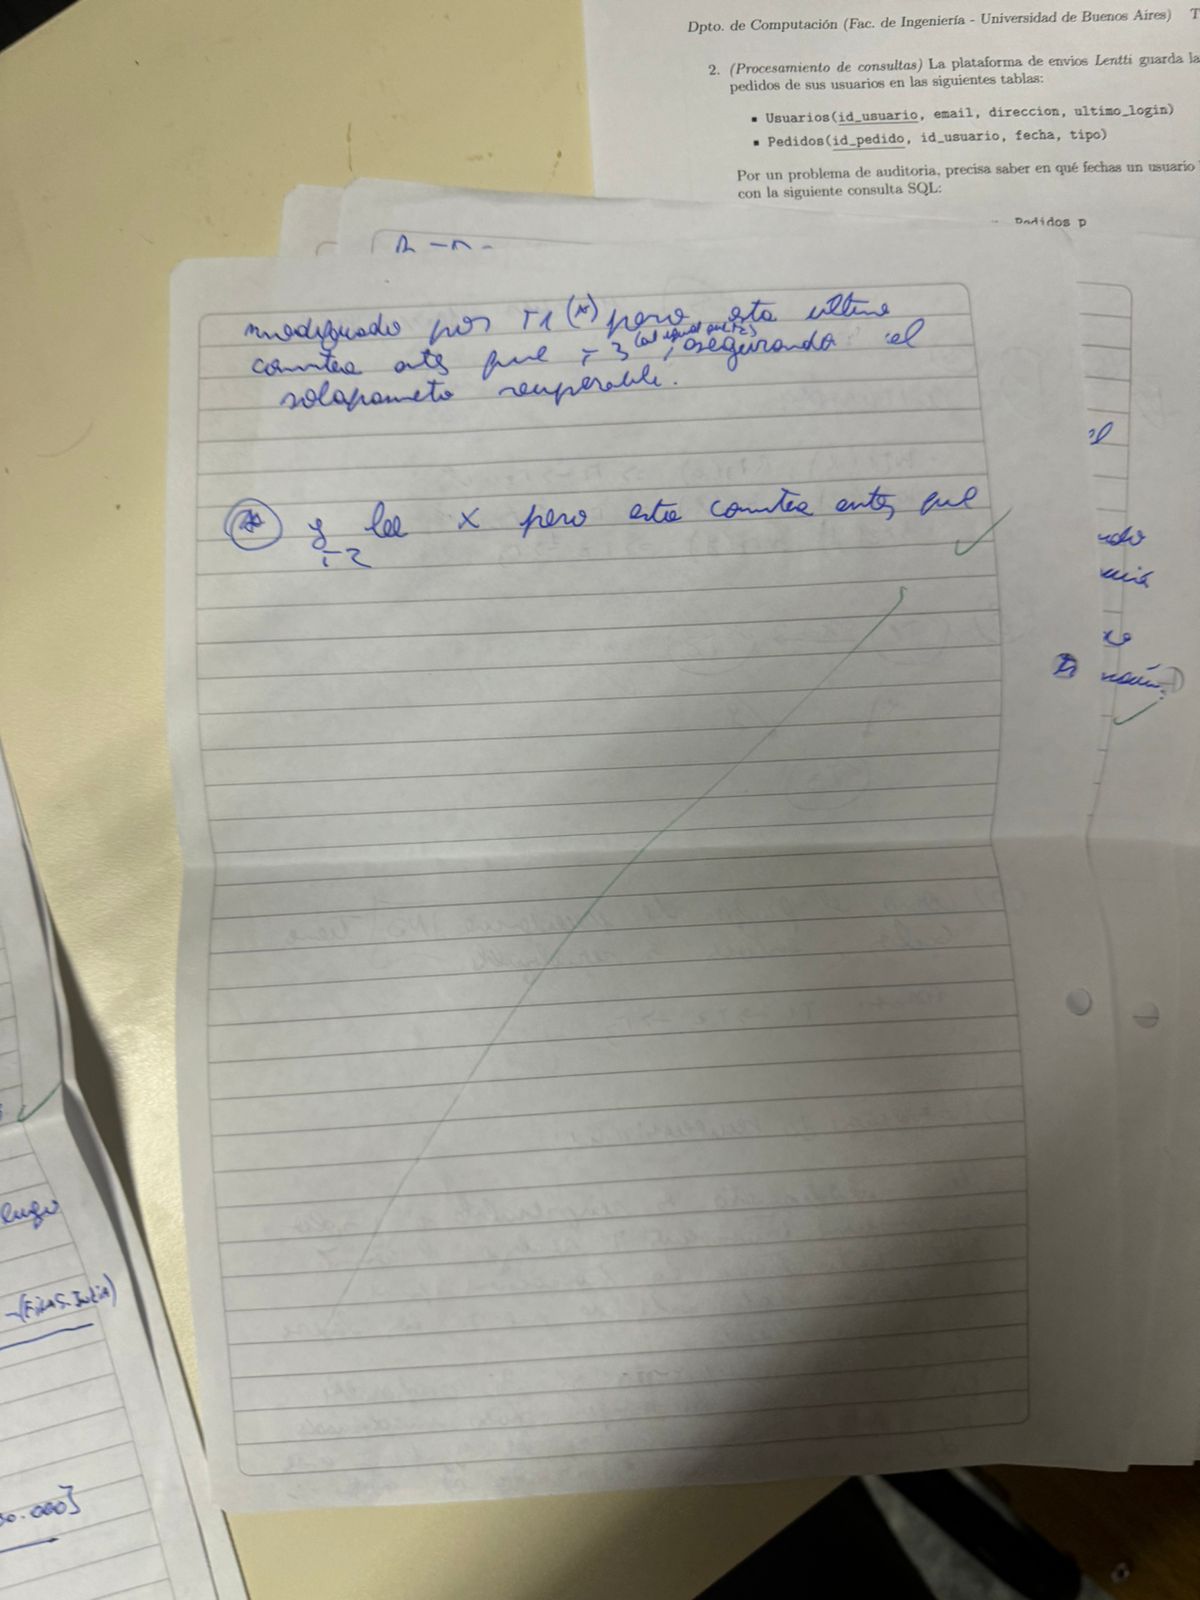 Dpto. de Computación (Fac. de Ingeniería - Universidad de Buenos Aires) T
2. (Procesamiento de consultas) La plataforma de envios Lentti guarda la
pedidos de sus usuarios en las siguientes tablas:
▪ Usuarios(id_usuario, email, direccion, ultimo_login)
▪ Pedidos(id_pedido, id_usuario, fecha, tipo)
Por un problema de auditoria, precisa saber en qué fechas un usuario
con la siguiente consulta SQL:
Pedidos p
modificado por T1 (*) pero esta ultima
(al igual que T2)
comitea antes que T3, asegurando el
solapamiento recuperable.
* y lee X pero esta comitea antes que
T2
el
luego
(FILAS.India)
0.000]